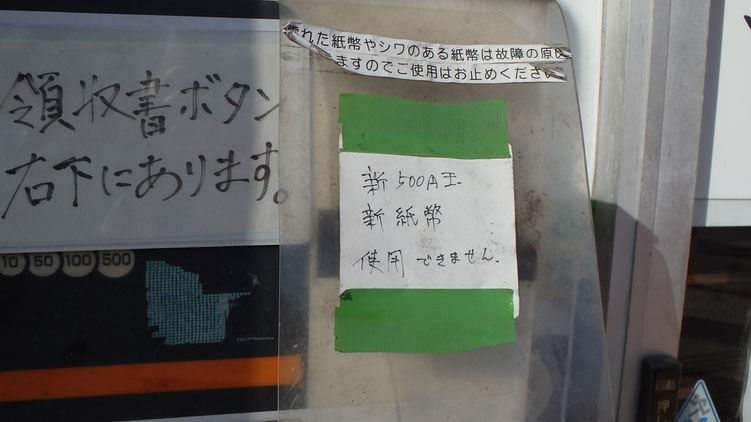 領収書ボタン
右下にあります。
れた紙幣やシワのある紙幣は故障の原因
ますのでご使用はお止めください
新500円玉
新紙幣
使用できません。
10 50 100 500
自動
押